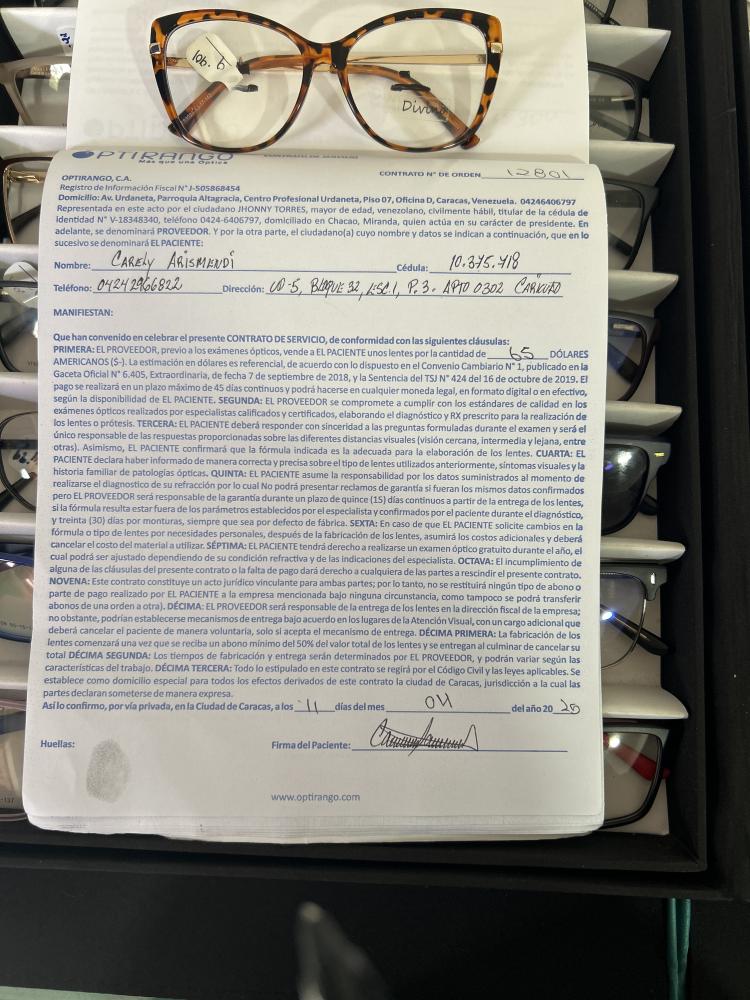 106.6
OPTIRANGO
Más que una Óptica
CONTRATO N° DE ORDEN 12801
OPTIRANGO, C.A.
Registro de Información Fiscal N° J-505868454
Domicilio: Av. Urdaneta, Parroquia Altagracia, Centro Profesional Urdaneta, Piso 07, Oficina D, Caracas, Venezuela. 04246406797
Representada en este acto por el ciudadano JHONNY TORRES, mayor de edad, venezolano, civilmente hábil, titular de la cédula de
Identidad N° V-18348340, teléfono 0424-6406797, domiciliado en Chacao, Miranda, quien actúa en su carácter de presidente. En
adelante, se denominará PROVEEDOR. Y por la otra parte, el ciudadano(a) cuyo nombre y datos se indican a continuación, que en lo
sucesivo se denominará EL PACIENTE:
Nombre: CARELY ARISMENDI Cédula: 10.375.718
Teléfono: 04242966822 Dirección: UD-5, BLOQUE 32, ESC.1, P.3. APTO 0302 CARICUAO
MANIFIESTAN:
Que han convenido en celebrar el presente CONTRATO DE SERVICIO, de conformidad con las siguientes cláusulas:
PRIMERA: EL PROVEEDOR, previo a los exámenes ópticos, vende a EL PACIENTE unos lentes por la cantidad de 65 DÓLARES
AMERICANOS ($-). La estimación en dólares es referencial, de acuerdo con lo dispuesto en el Convenio Cambiario N° 1, publicado en la
Gaceta Oficial N° 6.405, Extraordinaria, de fecha 7 de septiembre de 2018, y la Sentencia del TSJ N° 424 del 16 de octubre de 2019. El
pago se realizará en un plazo máximo de 45 días continuos y podrá hacerse en cualquier moneda legal, en formato digital o en efectivo,
según la disponibilidad de EL PACIENTE. SEGUNDA: EL PROVEEDOR se compromete a cumplir con los estándares de calidad en los
exámenes ópticos realizados por especialistas calificados y certificados, elaborando el diagnóstico y RX prescrito para la realización de
los lentes o prótesis. TERCERA: EL PACIENTE deberá responder con sinceridad a las preguntas formuladas durante el examen y será el
único responsable de las respuestas proporcionadas sobre las diferentes distancias visuales (visión cercana, intermedia y lejana, entre
otras). Asimismo, EL PACIENTE confirmará que la fórmula indicada es la adecuada para la elaboración de los lentes. CUARTA: EL
PACIENTE declara haber informado de manera correcta y precisa sobre el tipo de lentes utilizados anteriormente, síntomas visuales y la
historia familiar de patologías ópticas. QUINTA: EL PACIENTE asume la responsabilidad por los datos suministrados al momento de
realizarse el diagnostico de su refracción por lo cual No podrá presentar reclamos de garantía si fueran los mismos datos confirmados
pero EL PROVEEDOR será responsable de la garantía durante un plazo de quince (15) días continuos a partir de la entrega de los lentes,
si la fórmula resulta estar fuera de los parámetros establecidos por el especialista y confirmados por el paciente durante el diagnóstico,
y treinta (30) días por monturas, siempre que sea por defecto de fábrica. SEXTA: En caso de que EL PACIENTE solicite cambios en la
fórmula o tipo de lentes por necesidades personales, después de la fabricación de los lentes, asumirá los costos adicionales y deberá
cancelar el costo del material a utilizar. SÉPTIMA: EL PACIENTE tendrá derecho a realizarse un examen óptico gratuito durante el año, el
cual podrá ser ajustado dependiendo de su condición refractiva y de las indicaciones del especialista. OCTAVA: El incumplimiento de
alguna de las cláusulas del presente contrato o la falta de pago dará derecho a cualquiera de las partes a rescindir el presente contrato.
NOVENA: Este contrato constituye un acto jurídico vinculante para ambas partes; por lo tanto, no se restituirá ningún tipo de abono o
parte de pago realizado por EL PACIENTE a la empresa mencionada bajo ninguna circunstancia, como tampoco se podrá transferir
abonos de una orden a otra). DÉCIMA: EL PROVEEDOR será responsable de la entrega de los lentes en la dirección fiscal de la empresa;
no obstante, podrían establecerse mecanismos de entrega bajo acuerdo en los lugares de la Atención Visual, con un cargo adicional que
deberá cancelar el paciente de manera voluntaria, solo si acepta el mecanismo de entrega. DÉCIMA PRIMERA: La fabricación de los
lentes comenzará una vez que se reciba un abono mínimo del 50% del valor total de los lentes y se entregan al culminar de cancelar su
total DÉCIMA SEGUNDA: Los tiempos de fabricación y entrega serán determinados por EL PROVEEDOR, y podrán variar según las
características del trabajo. DÉCIMA TERCERA: Todo lo estipulado en este contrato se regirá por el Código Civil y las leyes aplicables. Se
establece como domicilio especial para todos los efectos derivados de este contrato la ciudad de Caracas, jurisdicción a la cual las
partes declaran someterse de manera expresa.
Así lo confirmo, por vía privada, en la Ciudad de Caracas, a los 11 días del mes 04 del año 20 25
Huellas:
Firma del Paciente:
www.optirango.com